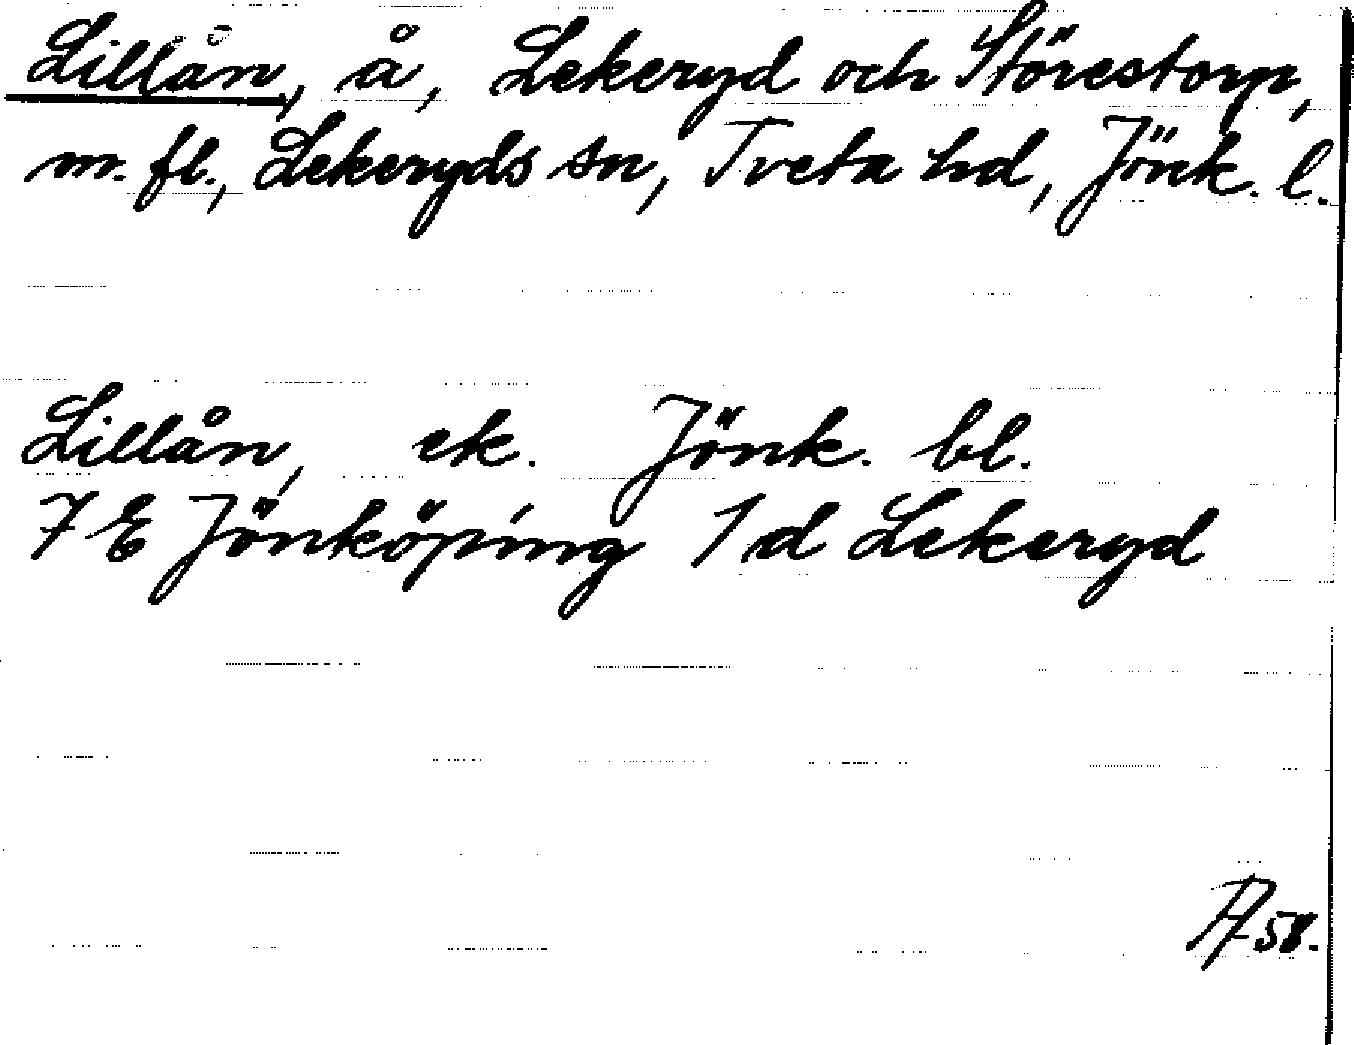 Lillån, å, Lekeryd och Störestorp,
m. fl., Lekeryds sn, Tveta hd, Jönk. l.
Lillån, ek. Jönk. bl.
7 E Jönköping 1 d Lekeryd